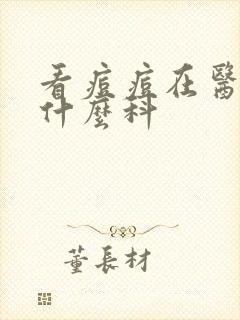 看痘痘在醫
什麼科
董長材